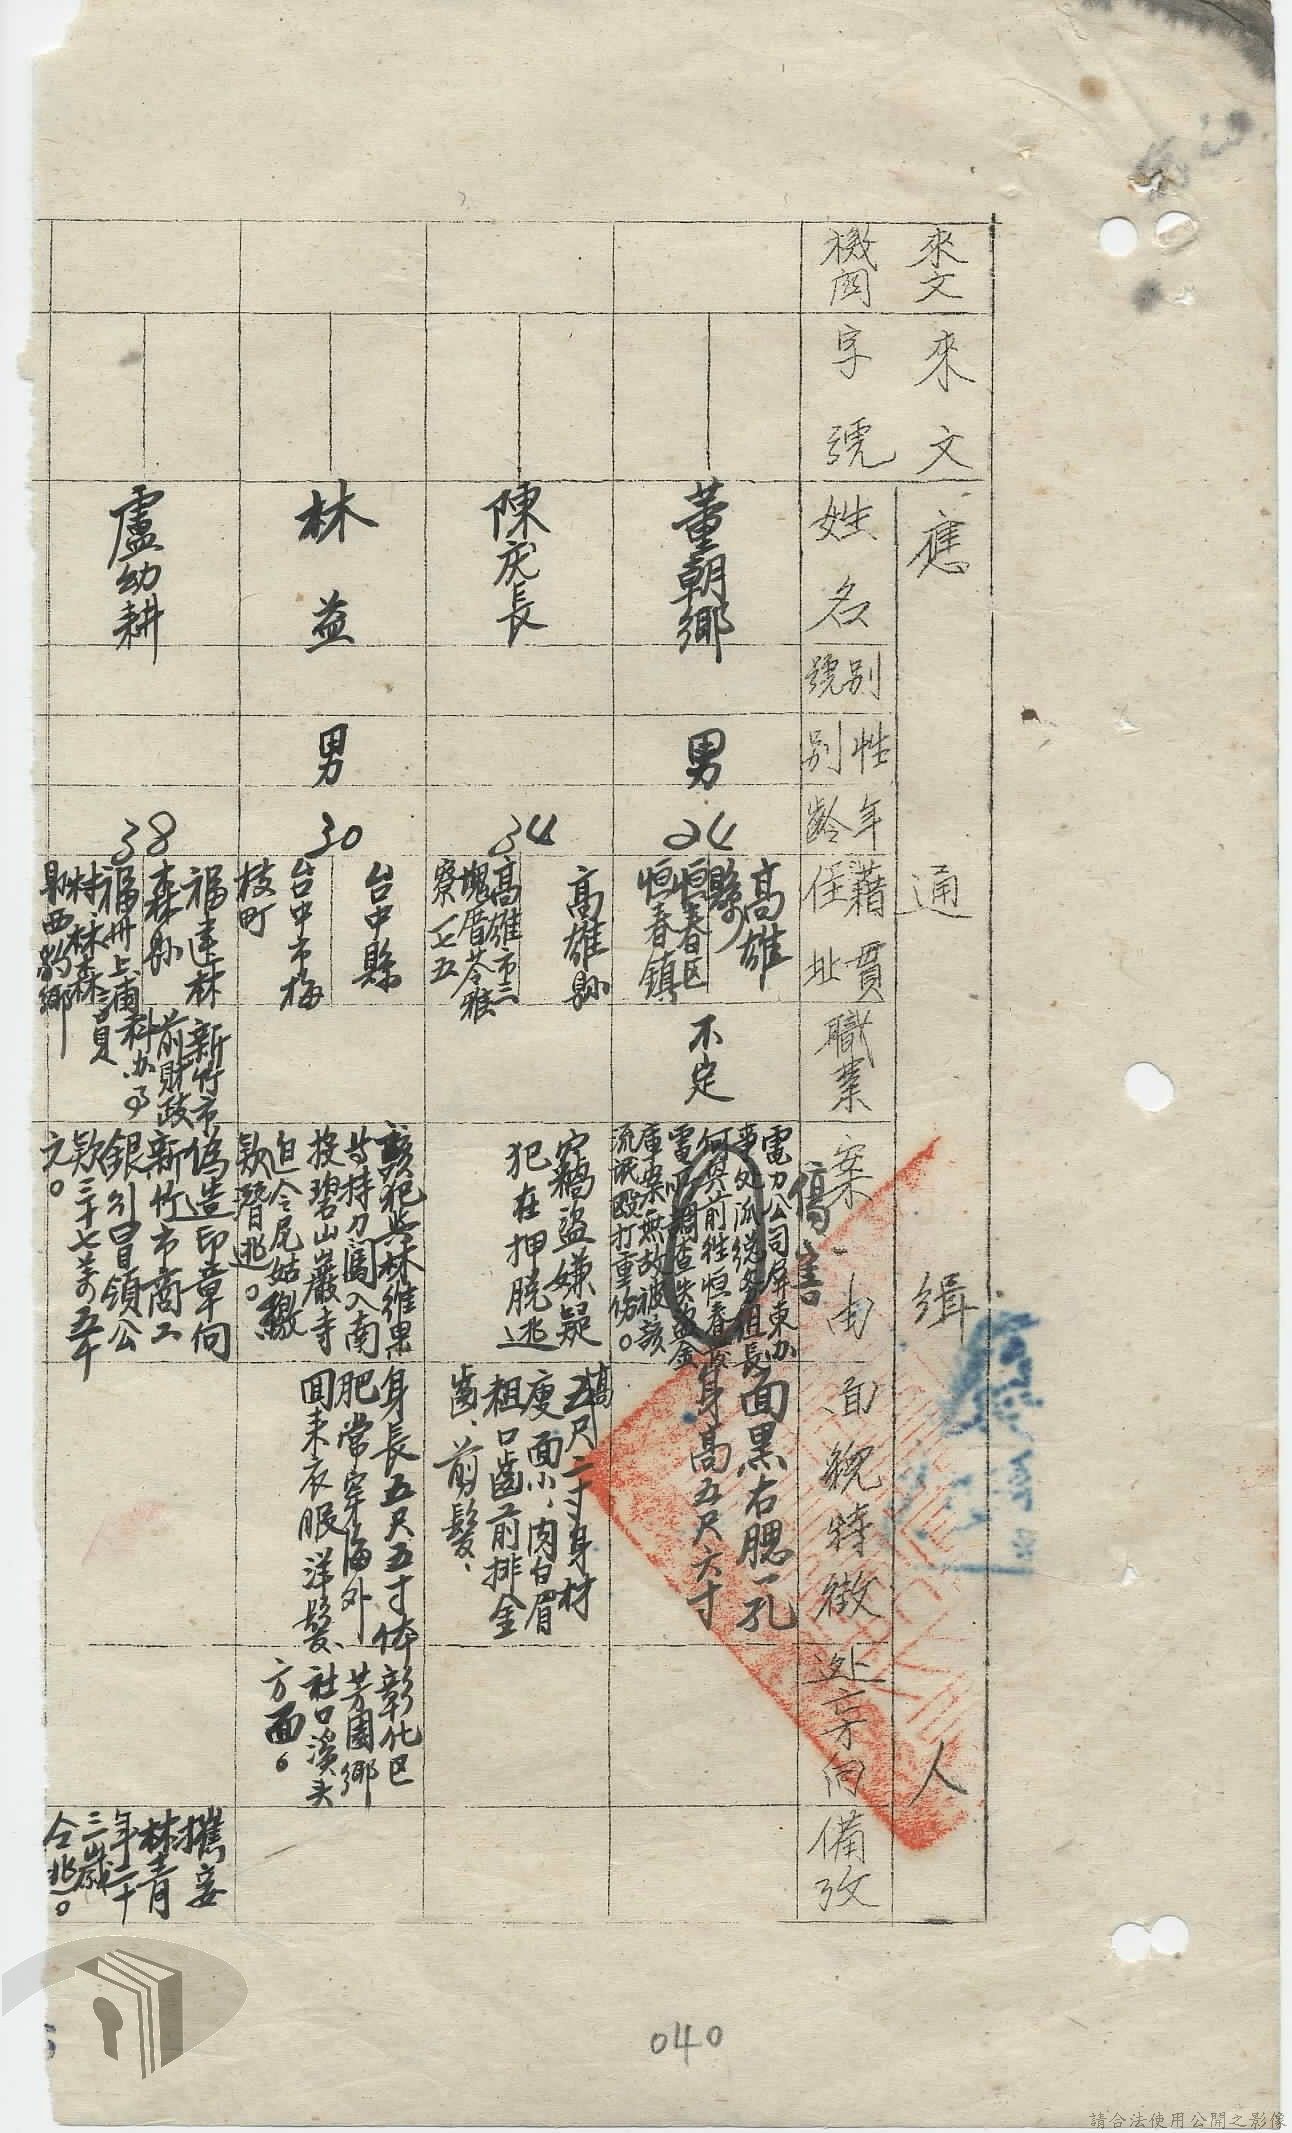 來文機関
來文字號
應通緝人
姓名
別號
性別
年齡
籍貫
住址
職業
案由
面貌特徵
逃亡方向
備攷
董朝鄉
男
24
高雄縣
恒春区
恒春鎮
不定
傷害
電力公司屏東办
事处派総务組長
何與前往恒春
電所調查失盜金
庫案無故被該
流氓毆打重伤。
面黑右腮一孔
身高五尺六寸
陳庆長
34
高雄縣
高雄市三
塊厝苓雅
寮一七五
竊盜嫌疑
犯在押脫逃
高
五尺二寸身材
廋面小、肉白眉
粗口齒前排金
齒、前髮、
林益
男
30
台中縣
台中市梅
枝町
該犯與林維果
等持刀闖入南
投碧山巖寺
迫令尼姑繳
欵潛逃。
身長五尺五寸体
肥常穿海外
囬来衣服洋髮
彰化区
芳園鄉
社口溪头
方面。
盧幼耕
38
福建林
森縣
福州上浦
村林森
縣西豹鄉
新竹市
前財政
科办事
員
偽造印章向
新竹市商工
銀引冒領公
欵三十七萬五千
元。
攜妾
林青
年二十
三歲
仝逃。
040
請合法使用公開之影像